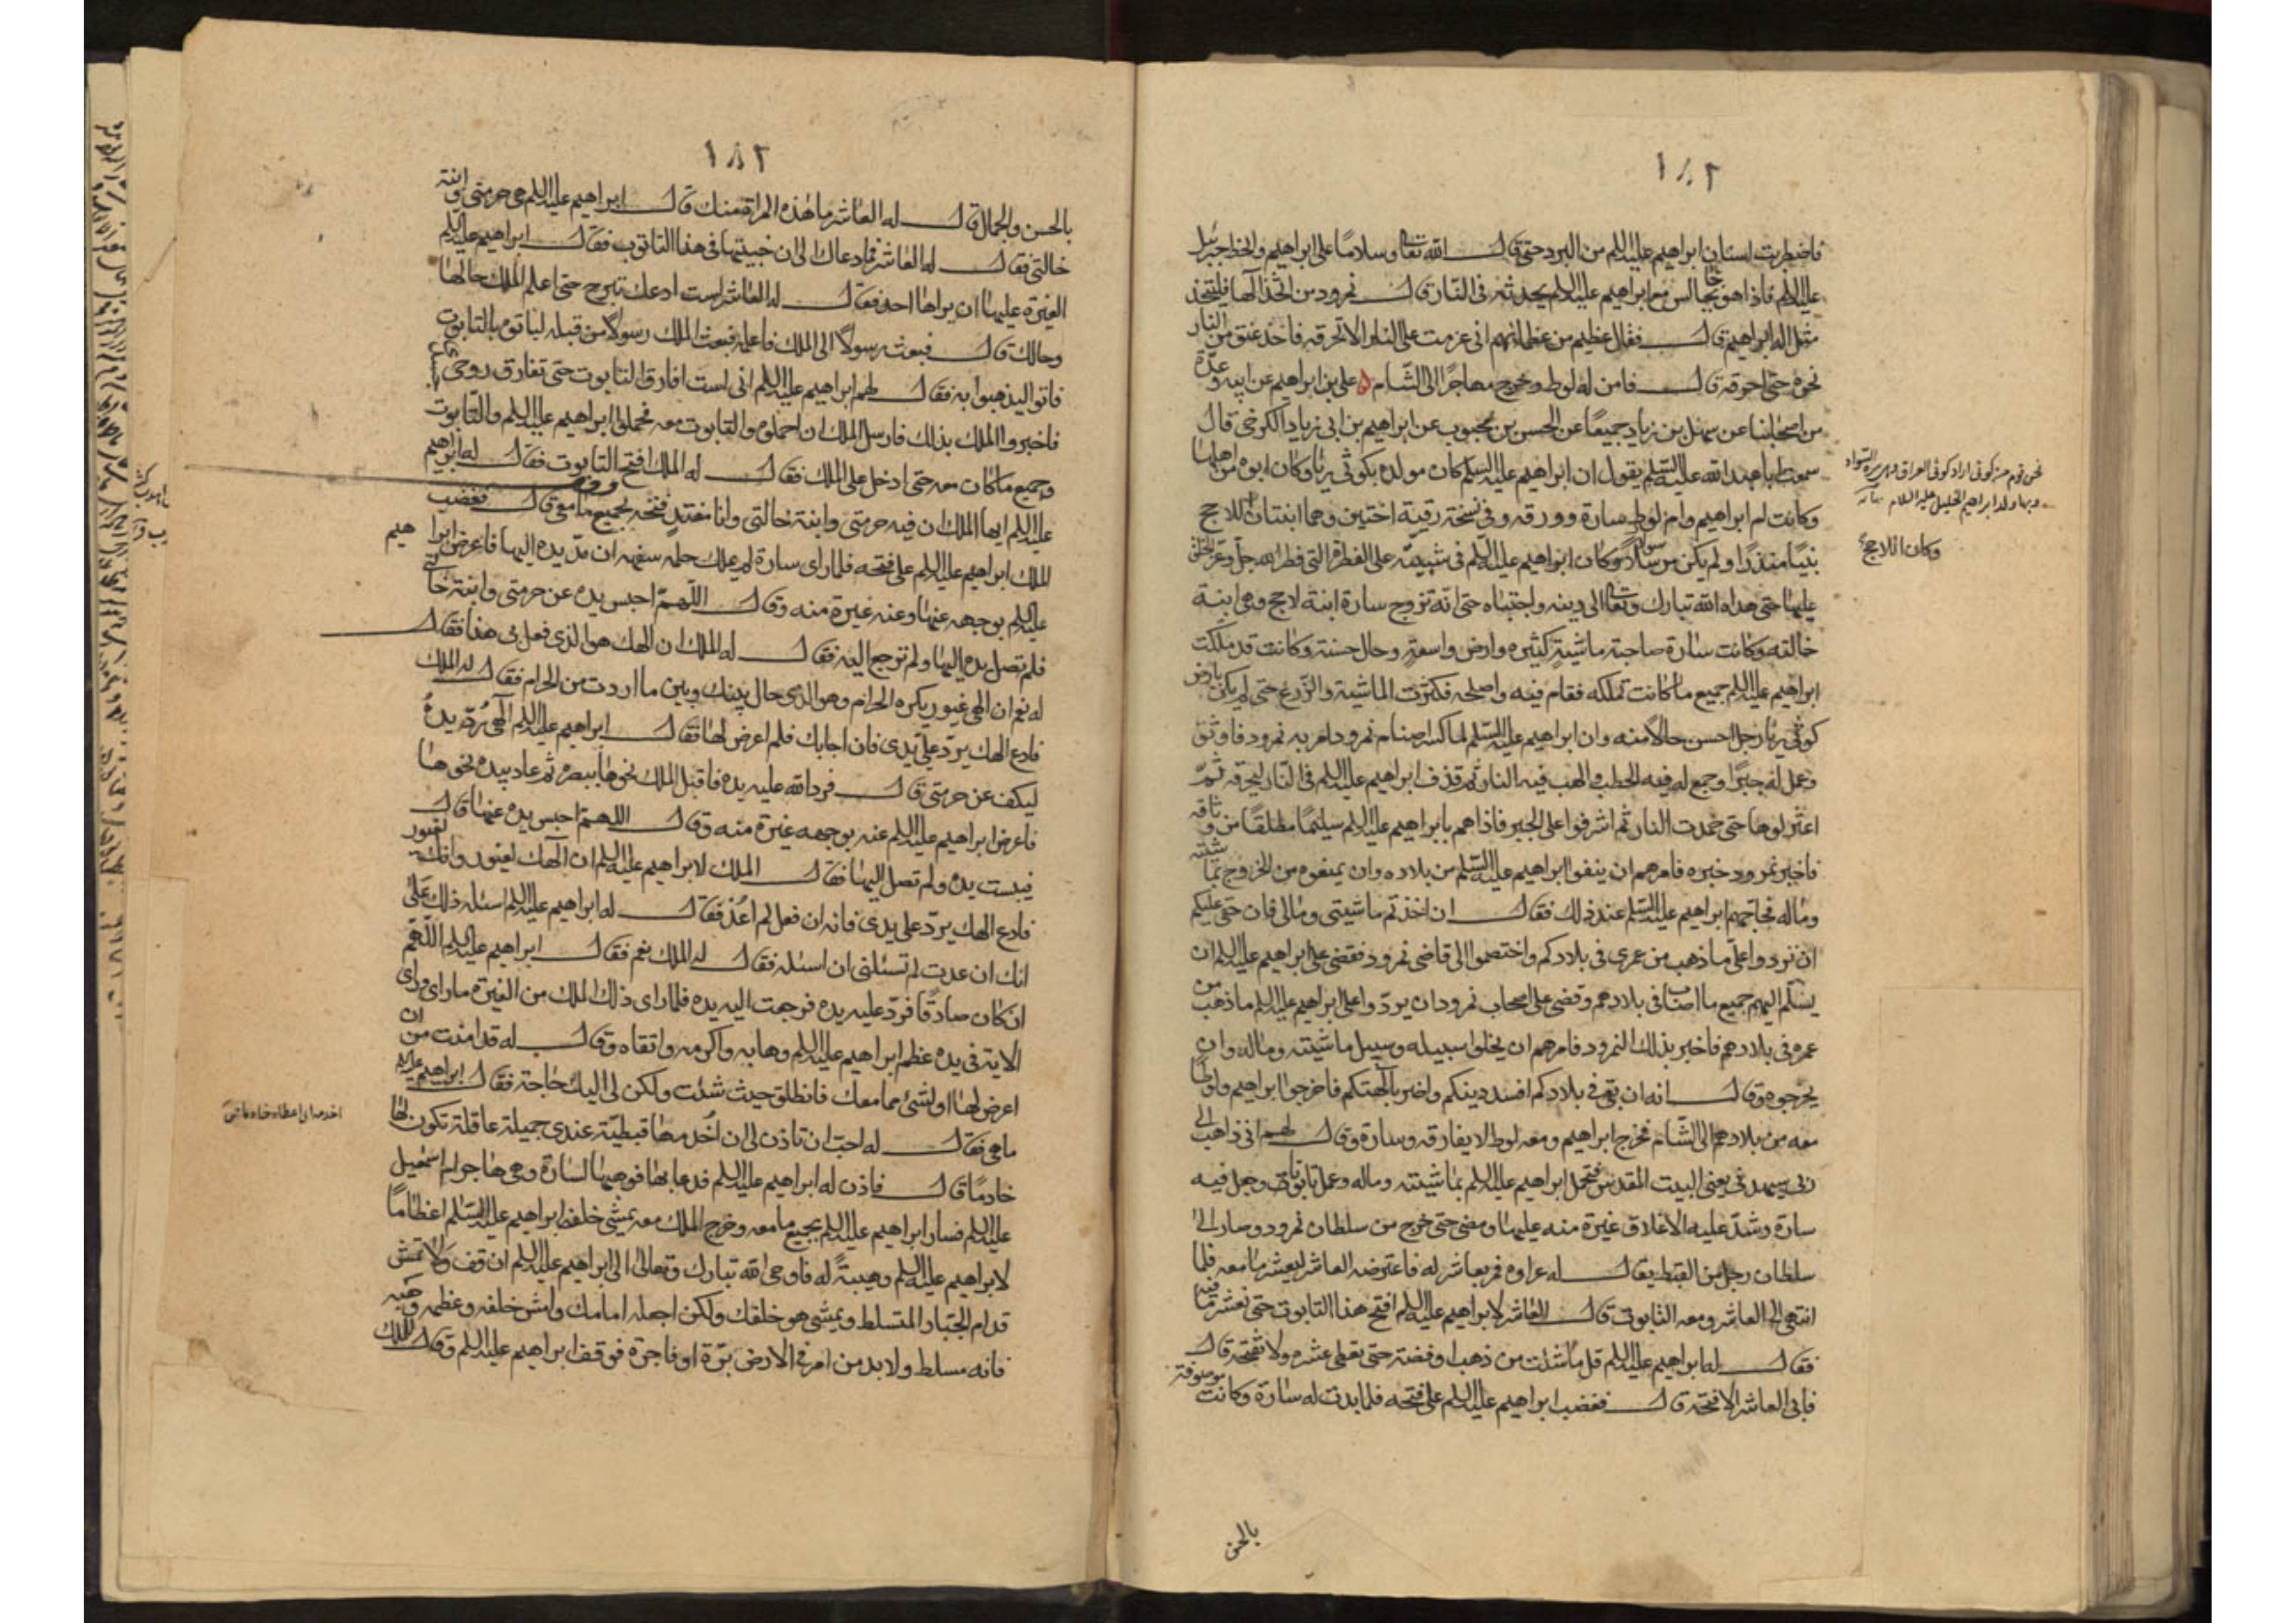 ١٨٢
فاضطربت اسنان ابراهيم عليه السلم من البرد حتى قال الله تعا وسلاما على ابراهيم وانحط جبرئيل
عليه السلم فاذا هو جالس مع ابراهيم عليه السلم يحدثه في النار قال نمرود من اتخذ الها فليتخذ
مثل اله ابراهيم قال فقال عظيم من عظمائهم اني عزمت على النار الا تحرقه فاخذ عنق من النار
نحوه حتى احرقه قال فامن له لوط وخرج مهاجرا الى الشام ه علي بن ابراهيم عن ابيه وعدة
من اصحابنا عن سهل بن زياد جميعا عن الحسن بن محبوب عن ابراهيم بن ابي زياد الكرخي قال
سمعت با عبد الله عليه السلم يقول ان ابراهيم عليه السلم كان مولده بكوثى ربا وكان ابوه من اهلها
وكانت ام ابراهيم وام لوط سارة وورقه وفي نسخة رقية اختين وهما ابنتان للاحج
نبيا منذرا ولم يكن رسولا وكان ابراهيم عليه السلم في شبيبته على الفطرة التي فطر الله جل وعز الخلق
عليها حتى هداه الله تبارك وتعا الى دينه واجتباه حتى انه تزوج سارة ابنة لاحج وهي ابنة
خالته وكانت سارة صاحبة ماشية كثيره وارض واسعة وحال حسنة وكانت قد ملكت
ابراهيم عليه السلم جميع ما كانت تملكه فقام فيه واصلحه فكثرت الماشية والزرع حتى لم يكن بارض
كوثى ربا رجل احسن حالا منه وان ابراهيم عليه السلم لما كسر اصنام نمرود امر به نمرود فاوثق
وعمل له حيرا وجمع له فيه الحطب والهب فيه النار ثم قذف ابراهيم عليه السلم في النار ليحرقه ثم
اعتزلوها حتى خمدت النار ثم اشرفوا على الحير فاذا هم بابراهيم عليه السلم سليما مطلقا من وثاقه
فاخبر نمرود خبره فامرهم ان ينفوا ابراهيم عليه السلم من بلاده وان يمنعوه من الخروج بماشيته
وماله فحاجهم ابراهيم عليه السلم عند ذلك فقال ان اخذتم ماشيتي ومالي فان حقي عليكم
ان تردوا علي ما ذهب من عمري في بلادكم واختصموا الى قاضي نمرود فقضى على ابراهيم عليه السلم ان
يسلم اليهم جميع ما اصاب في بلادهم وقضى على اصحاب نمرود ان يردوا على ابراهيم عليه السلم ما ذهب من
عمره في بلادهم فاخبر بذلك النمرود فامرهم ان يخلوا سبيله وسبيل ماشيته وماله وان
يخرجوه وقال انه ان بقي في بلادكم افسد دينكم واضر بالهتكم فاخرجوا ابراهيم ولوطا
معه من بلادهم الى الشام فخرج ابراهيم ومعه لوط لا يفارقه وسارة وقال لهم اني ذاهب الى
ربي سيهدين يعني البيت المقدس فتحمل ابراهيم عليه السلم بماشيته وماله وعمل تابوتا وجعل فيه
سارة وشد عليه الاغلاق غيرة منه عليها ومضى حتى خرج من سلطان نمرود وصار الى
سلطان رجل من القبط يقال له عراره فمر بعاشر له فاعترضه العاشر ليعشر ما معه فلما
انتهى الى العاشر ومعه التابوت قال العاشر لابراهيم عليه السلم افتح هذا التابوت حتى نعشر ما فيه
فقال له ابراهيم عليه السلم قل ما شئت من ذهب او فضة حتى نعطي عشره ولا نفتحه قال
فابى العاشر الا فتحه قال فغضب ابراهيم عليه السلم على فتحه فلما بدت له سارة وكانت موصوفة
بالحسن
نحن قوم من كوثى اراد كوثى العراق وهي سرة السواد
وبها ولد ابراهيم الخليل عليه السلام نهاية
وكان اللاحج
١٨٣
بالحسن والجمال قال له العاشر ما هذه المراة منك قال ابراهيم عليه السلم هي حرمتي وابنة
خالتي فقال له العاشر فما دعاك الى ان خبيتها في هذا التابوت فقال ابراهيم عليه السلم
الغيرة عليها ان يراها احد فقال له العاشر لست ادعك تبرح حتى اعلم الملك حالها
وحالك قال فبعث رسولا الى الملك فاعلمه فبعث الملك رسولا من قبله لياتوه بالتابوت
فاتوا ليذهبوا به فقال لهم ابراهيم عليه السلم اني لست افارق التابوت حتى تفارق روحي جسدي
فاخبروا الملك بذلك فارسل الملك ان احملوه والتابوت معه فحملوا ابراهيم عليه السلم والتابوت
وجميع ما كان معه حتى ادخل على الملك فقال له الملك افتح التابوت فقال له ابراهيم
عليه السلم ايها الملك ان فيه حرمتي وابنة خالتي وانا مفتد فتحه بجميع ما معي قال فغضب
الملك ابراهيم عليه السلم على فتحه فلما راى سارة لم يملك حلمه سفهه ان مد يده اليها فاعرض ابراهيم
عليه السلم بوجهه عنها وعنه غيرة منه وقال اللهم احبس يده عن حرمتي وابنة خالتي
فلم تصل يده اليها ولم ترجع اليه فقال له الملك ان الهك هو الذي فعل بي هذا فقال
له نعم ان الهي غيور يكره الحرام وهو الذي حال بينك وبين ما اردت من الحرام فقال له الملك
فادع الهك يرد علي يدي فان اجابك فلم اعرض لها فقال ابراهيم عليه السلم الهي رد يده
ليكف عن حرمتي قال فرد الله عليه يده فاقبل الملك نحوها ببصره ثم عاد بيده نحوها
فاعرض ابراهيم عليه السلم عنه بوجهه غيرة منه وقال اللهم احبس يده عنها قال
فيبست يده ولم تصل اليها فقال الملك لابراهيم عليه السلم ان الهك لغيور وانك لغيور
فادع الهك يرد علي يدي فانه ان فعل لم اعد فقال له ابراهيم عليه السلم اسئله ذلك على
انك ان عدت لم تسئلني ان اسئله فقال له الملك نعم فقال ابراهيم عليه السلم اللهم
ان كان صادقا فرد عليه يده فرجعت اليه يده فلما راى ذلك الملك من الغيرة ما راى وراى
الاية في يده عظم ابراهيم عليه السلم وهابه واكرمه واتقاه وقال له قد امنت من ان
اعرض لها او لشئ مما معك فانطلق حيث شئت ولكن لي اليك حاجة فقال ابراهيم عليه السلم
ما هي فقال له احب ان تاذن لي ان اخدمها قبطية عندي جميلة عاقلة تكون لها
خادما قال فاذن له ابراهيم عليه السلم فدعا بها فوهبها لسارة وهي هاجر ام اسمعيل
عليه السلم فسار ابراهيم عليه السلم بجميع ما معه وخرج الملك معه يمشي خلف ابراهيم عليه السلم اعظاما
لابراهيم عليه السلم وهيبة له فاوحى الله تبارك وتعالى الى ابراهيم عليه السلم ان قف ولا تمش
قدام الجبار المتسلط ويمشي هو خلفك ولكن اجعله امامك وامش خلفه وعظمه وهبه
فانه مسلط ولا بد من امرة في الارض برة او فاجرة فوقف ابراهيم عليه السلم وقال للملك